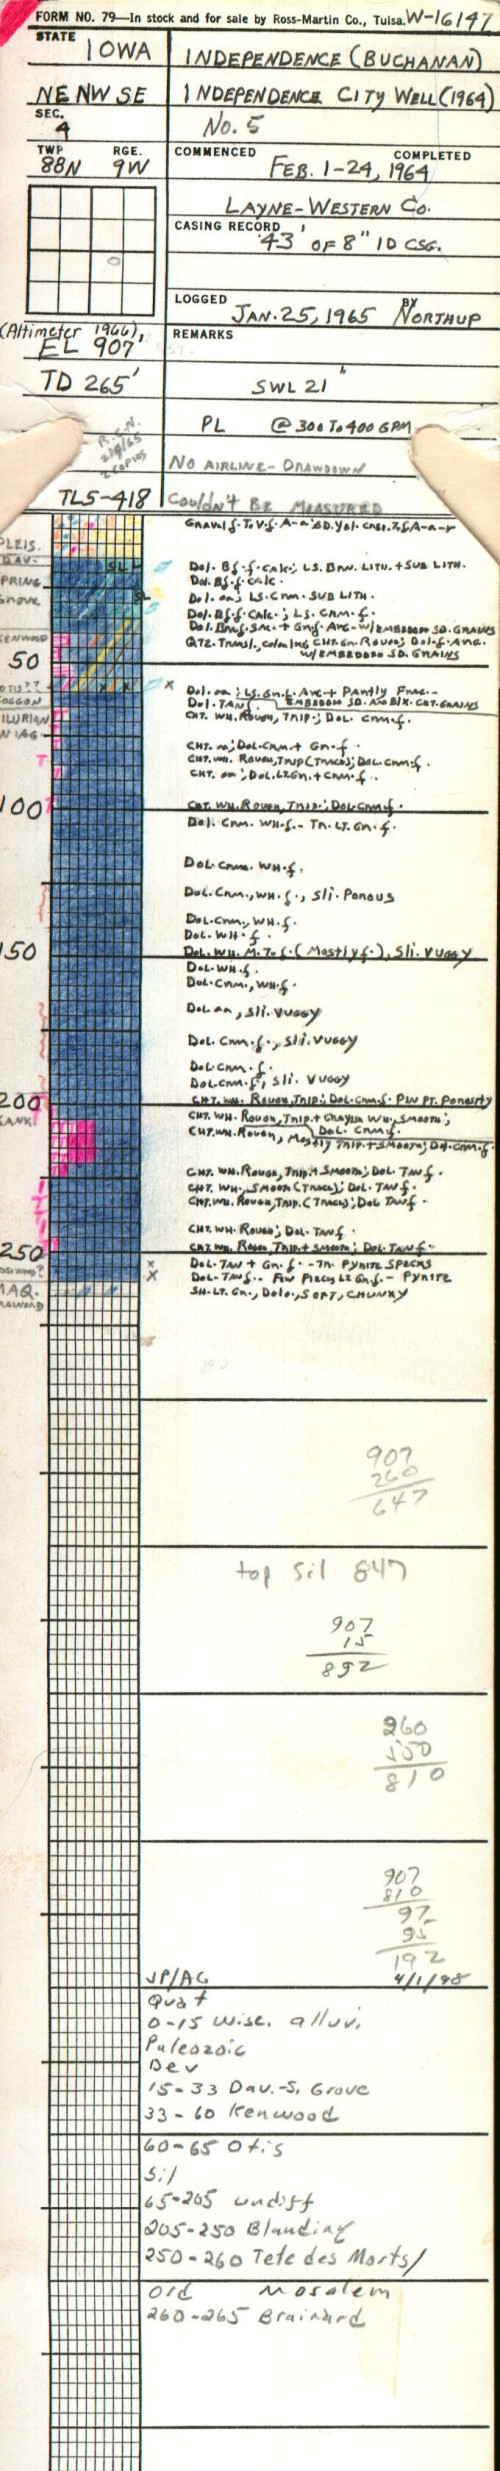 FORM NO. 79—In stock and for sale by Ross-Martin Co., Tulsa. W-16147
STATE IOWA
INDEPENDENCE (BUCHANAN)
NE NW SE
INDEPENDENCE CITY WELL (1964)
SEC. 4
No. 5
TWP 88N RGE. 9W
COMMENCED COMPLETED
FEB. 1-24, 1964
LAYNE-WESTERN CO.
CASING RECORD
43' OF 8" ID CSG.
LOGGED JAN. 25, 1965 BY NORTHUP
(Altimeter 1966)
EL 907'
REMARKS
TD 265'
SWL 21'
PL @ 300 TO 400 GPM
R.E.N.
2 COPIES
NO AIRLINE - DRAWDOWN
TLS-418
COULDN'T BE MEASURED
PLEIS.
DAV.
SL
DOL. Bf. f. CALC.; LS. BRN. LITH. + SUB LITH.
DOL. Bf. f. CALC.
SL
DOL. an; LS. CRM. SUB LITH.
DOL. Bf. f. CALC.; LS. CRM. f.
KENWOOD
W/EMBEDDED SD. GRAINS
50
OTIS??
COGGON
DOL. TAN f.
CHT. WH. ROUGH, TRIP.; DOL. CRM. f.
CHT. an; DOL. CRM. + GN. f.
CHT. WH. ROUGH, TRIP (TRACE); DOL. CRM. f.
CHT. an; DOL. LT. GN. + CRM. f.
100
CHT. WH. ROUGH, TRIP.; DOL. CRM. f.
DOL. CRM. WH. f. - TR. LT. GN. f.
DOL. CRM. WH. f.
DOL. CRM., WH. f., SLI. POROUS
DOL. CRM., WH. f.
DOL. WH. f.
150
DOL. WH. M. TO f. (MOSTLY f.), SLI. VUGGY
DOL. WH. f.
DOL. CRM., WH. f.
DOL. an, SLI. VUGGY
DOL. CRM. f., SLI. VUGGY
DOL. CRM. f.
DOL. CRM. f, SLI. VUGGY
200
CHT. WH. ROUGH, TRIP.; DOL. CRM. f. PIN PT. POROSITY
CHT. WH. ROUGH, TRIP. + GRAYISH WH., SMOOTH;
DOL. CRM. f.
CHT. WH. ROUGH, MOSTLY TRIP. + SMOOTH; DOL. CRM. f.
CHT. WH. ROUGH, TRIP. + SMOOTH; DOL. TAN f.
CHT. WH., SMOOTH (TRACE); DOL. TAN f.
CHT. WH. ROUGH, TRIP. (TRACE); DOL TAN f.
CHT. WH. ROUGH; DOL. TAN f.
250
CHT. WH. ROUGH, TRIP. + SMOOTH; DOL. TAN f.
DOL. TAN + GN. f. - TR. PYRITE SPECKS
DOL. TAN f. - FEW PIECES LT GN. f. - PYRITE
MAQ.
SH. LT. GN., DOLO., SOFT, CHUNKY
907
260
647
top Sil 847
907
15
892
260
810
907
810
97
95
192
JP/AG 4/1/98
Quat
0-15 Wisc. alluv.
Paleozoic
Dev
15-33 Dav.-S. Grove
33-60 Kenwood
60-65 Otis
Sil
65-205 undiff
205-250 Blanding
250-260 Tete des Morts/
Ord Mosalem
260-265 Brainard